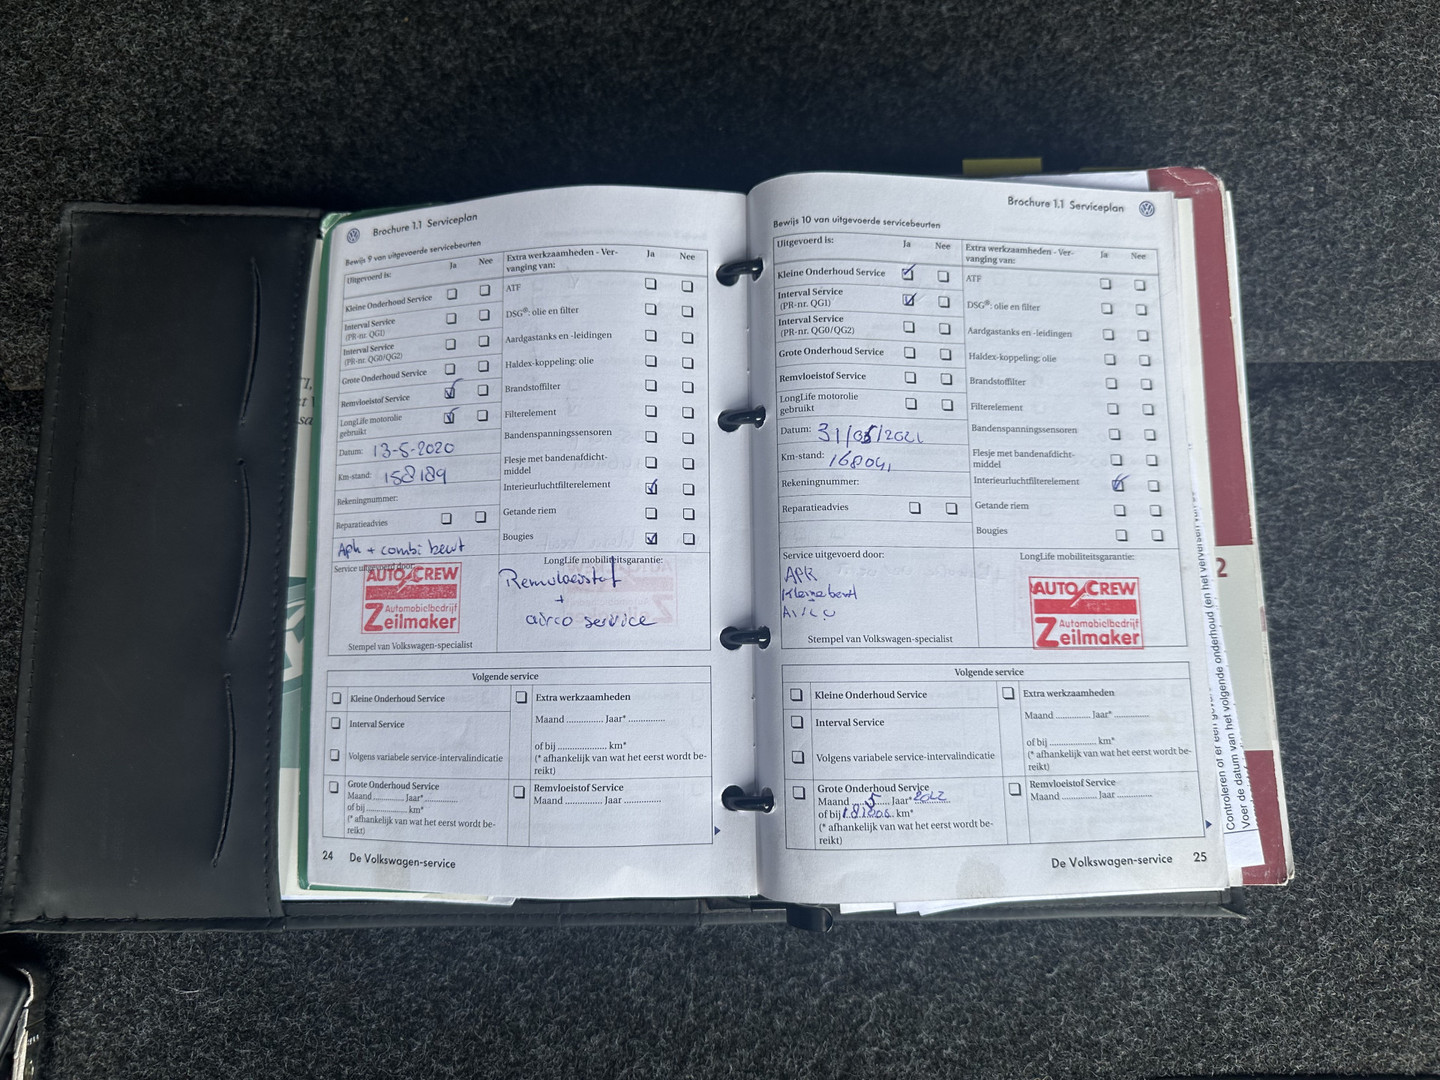 Brochure 1.1 Serviceplan
Bewijs 9 van uitgevoerde servicebeurten
Uitgevoerd is:
Ja
Nee
Kleine Onderhoud Service
Interval Service
(PR-nr. QG1)
Interval Service
(PR-nr. QG0/QG2)
Grote Onderhoud Service
Remvloeistof Service
LongLife motorolie
gebruikt
Datum: 13-5-2020
Km-stand: 158189
Rekeningnummer:
Reparatieadvies
Apk + combi beurt
Service uitgevoerd door:
AUTO CREW
Automobielbedrijf
Zeilmaker
Stempel van Volkswagen-specialist
Extra werkzaamheden - Ver-
vanging van:
Ja
Nee
ATF
DSG®: olie en filter
Aardgastanks en -leidingen
Haldex-koppeling: olie
Brandstoffilter
Filterelement
Bandenspanningssensoren
Flesje met bandenafdicht-
middel
Interieurluchtfilterelement
Getande riem
Bougies
LongLife mobiliteitsgarantie:
Remvloeistof
+
airco service
Volgende service
Kleine Onderhoud Service
Interval Service
Volgens variabele service-intervalindicatie
Grote Onderhoud Service
Maand ............ Jaar* ................
of bij .................... km*
(* afhankelijk van wat het eerst wordt be-
reikt)
Extra werkzaamheden
Maand .............. Jaar* ..............
of bij .................... km*
(* afhankelijk van wat het eerst wordt be-
reikt)
Remvloeistof Service
Maand ............. Jaar ..............
24 De Volkswagen-service
Brochure 1.1 Serviceplan
Bewijs 10 van uitgevoerde servicebeurten
Uitgevoerd is:
Ja
Nee
Kleine Onderhoud Service
Interval Service
(PR-nr. QG1)
Interval Service
(PR-nr. QG0/QG2)
Grote Onderhoud Service
Remvloeistof Service
LongLife motorolie
gebruikt
Datum: 31/05/2021
Km-stand: 168041
Rekeningnummer:
Reparatieadvies
Service uitgevoerd door:
APK
Kleine beurt
Airco
Stempel van Volkswagen-specialist
Extra werkzaamheden - Ver-
vanging van:
Ja
Nee
ATF
DSG®: olie en filter
Aardgastanks en -leidingen
Haldex-koppeling: olie
Brandstoffilter
Filterelement
Bandenspanningssensoren
Flesje met bandenafdicht-
middel
Interieurluchtfilterelement
Getande riem
Bougies
LongLife mobiliteitsgarantie:
AUTO CREW
Automobielbedrijf
Zeilmaker
Volgende service
Kleine Onderhoud Service
Interval Service
Volgens variabele service-intervalindicatie
Grote Onderhoud Service
Maand 5 Jaar* 2022
of bij km*
(* afhankelijk van wat het eerst wordt be-
reikt)
Extra werkzaamheden
Maand ............. Jaar* ..............
of bij .................... km*
(* afhankelijk van wat het eerst wordt be-
reikt)
Remvloeistof Service
Maand ............. Jaar ..............
De Volkswagen-service 25
2
Voer de datum van het volgende onderhoud (en het verversen van